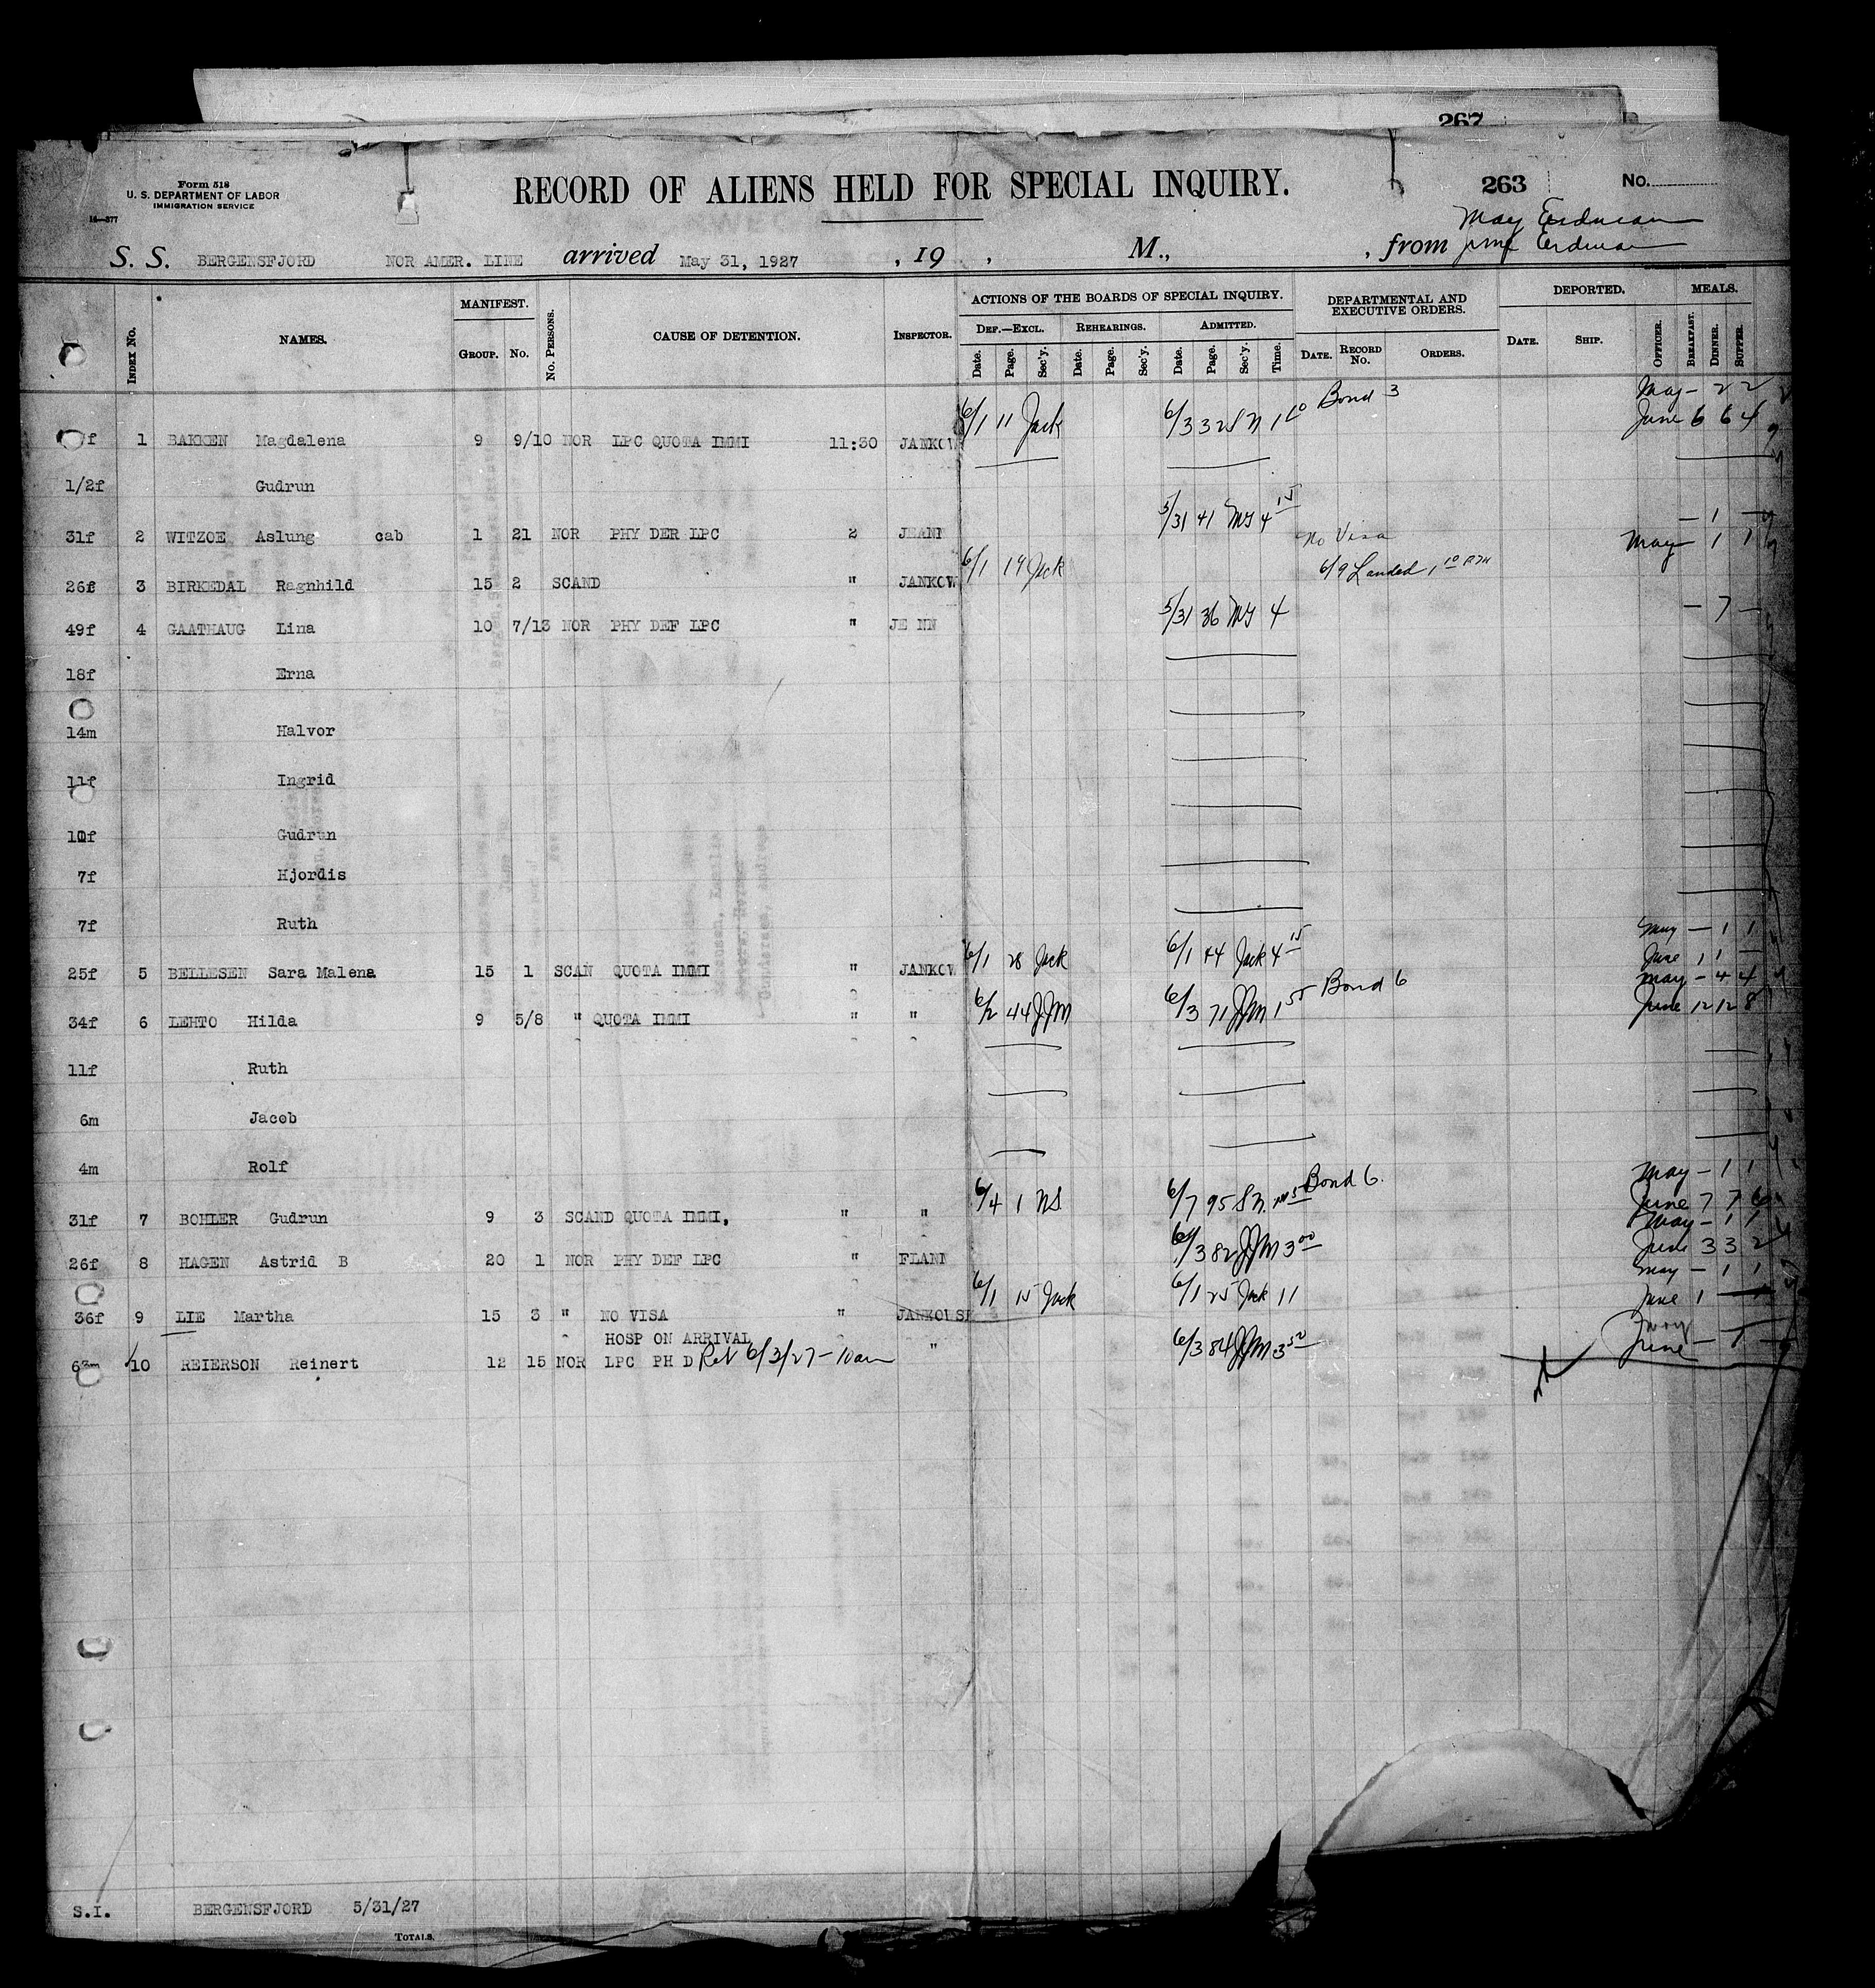 267
Form 518
U. S. DEPARTMENT OF LABOR
IMMIGRATION SERVICE
14—377
RECORD OF ALIENS HELD FOR SPECIAL INQUIRY.
263 No.
May Erdman
S. S. BERGENSFJORD NOR AMER. LINE arrived May 31, 1927 , 19 , M., , from June Erdman
INDEX No. NAMES. MANIFEST. GROUP. No. No. PERSONS. CAUSE OF DETENTION. INSPECTOR. ACTIONS OF THE BOARDS OF SPECIAL INQUIRY. DEF.—EXCL. Date. Page. Sec'y. REHEARINGS. Date. Page. Sec'y. ADMITTED. Date. Page. Sec'y. Time. DEPARTMENTAL AND EXECUTIVE ORDERS. DATE. RECORD No. ORDERS. DEPORTED. DATE. SHIP. OFFICER. MEALS. BREAKFAST. DINNER. SUPPER.
May – 2 2
f 1 BAKKEN Magdalena 9 9/10 NOR LPC QUOTA IMMI 11:30 JANKOW 6/1 11 Jack 6/3 32 SN 1 Bond 3 June 6 6 4
1/2f Gudrun
31f 2 WITZOE Aslung cab 1 21 NOR PHY DER LPC 2 JEANN 5/31 41 MS 4 15 – 1 –
No Visa May – 1 1
26f 3 BIRKEDAL Ragnhild 15 2 SCAND " JANKOW 6/1 19 Jack 6/9 Landed, 1 10 PM
49f 4 GAATHAUG Lina 10 7/13 NOR PHY DEF LPC " JE NN 5/31 36 MS 4 – 7 –
18f Erna
14m Halvor
11f Ingrid
10f Gudrun
7f Hjordis
7f Ruth
May – 1 1
25f 5 BELLESEN Sara Malena 15 1 SCAN QUOTA IMMI " JANKOW 6/1 28 Jack 6/1 44 Jack 4 15 June 1 1 –
May – 4 4
34f 6 LEHTO Hilda 9 5/8 " QUOTA IMMI " " 6/2 44 JJM 6/3 71 JJM 1 55 Bond 6 June 12 12 8
11f Ruth
6m Jacob
4m Rolf
May – 1 1
31f 7 BOHLER Gudrun 9 3 SCAND QUOTA IMMI, " " 6/4 1 NS 6/7 95 SN. Bond 6. June 7 7 6
May – 1 1
26f 8 HAGEN Astrid B 20 1 NOR PHY DEF LPC " FLANN 6/3 82 JJM 3 00 June 3 3 2
May – 1 1
36f 9 LIE Martha 15 3 " NO VISA " JANKOWSK 6/1 15 Jack 6/1 25 Jack 11 June 1
HOSP ON ARRIVAL " May
63m 10 REIERSON Reinert 12 15 NOR LPC PH D Rel 6/3/27 – 10 am 6/3 84 JJM 3 50 June – 1 –
S.I. BERGENSFJORD 5/31/27
TOTALS.